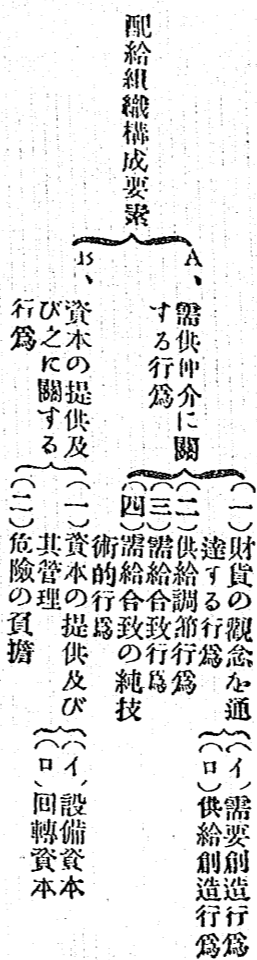 配給組織構成要素
A、需供仲介に關
する行爲
(一)財貨の觀念を通
達する行爲
(イ)需要創造行爲
(ロ)供給創造行爲
(二)供給調節行爲
(三)需給合致行爲
(四)需給合致の純技
術的行爲
B、資本の提供及
び之に關する
行爲
(一)資本の提供及び
其管理
(イ)設備資本
(ロ)回轉資本
(二)危險の負擔